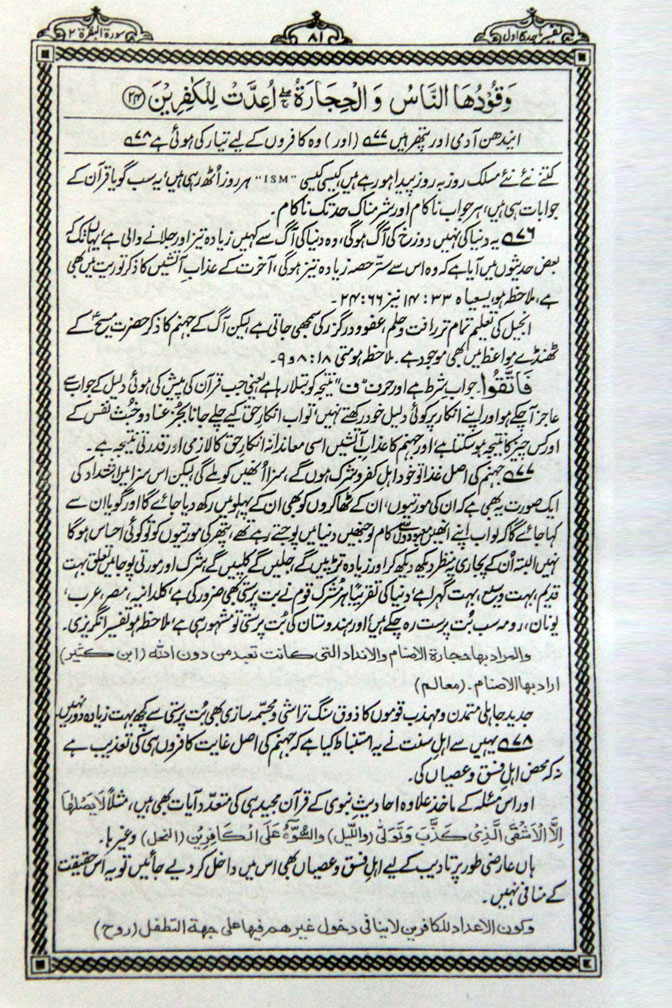 تفسیر ماجدی اول
۸۱
سورة البقرة ۲
وَقُوْدُهَا النَّاسُ وَالْحِجَارَةُ ۖۚ اُعِدَّتْ لِلْكٰفِرِيْنَ ﴿۲۴﴾
ایندھن آدمی اور پتھر ہیں ۷۷ (اور) وہ کافروں کے لیے تیار کی ہوئی ہے ۷۸
کتنے نئے نئے مسلک روز بہ روز پیدا ہورہے ہیں کیسی کیسی "ISM" ہر روز اُٹھ رہی ہیں، یہ سب گویا قرآن کے
جوابات ہی ہیں، ہر جواب ناکام اور شرمناک حد تک ناکام۔
۷۶ یہ دنیا کی نہیں دوزخ کی آگ ہوگی، وہ دنیا کی آگ سے کہیں زیادہ تیز اور جلانے والی ہے، یہاں تک کہ
بعض حدیثوں میں آیا ہے کہ وہ اس سے ستّر حصہ زیادہ تیز ہوگی، آخرت کے عذابِ آتشیں کا ذکر توریت میں بھی
ہے، ملاحظہ ہو، یسعیاہ ۳۳:۱۴ نیز ۶۶:۲۴۔
انجیل کی تعلیم تمام تر رافت و حلم، عفو و درگزر کی سمجھی جاتی ہے لیکن آگ کے جہنم کا ذکر حضرت مسیحؑ کے
ٹھنڈے مواعظ میں بھی موجود ہے۔ ملاحظہ ہو متی ۱۸:۸ و ۹۔
فَاتَّقُوا جوابِ شرط ہے اور حرف "ف" نتیجہ کو بتلا رہا ہے یعنی جب قرآن کی پیش کی ہوئی دلیل کے جواب سے
عاجز آچکے ہو اور اپنے انکار پر کوئی دلیل خود رکھتے نہیں، تو اب انکارِ حق کیے چلے جانا بجُز عناد و خُبث نفس کے
اور کس چیز کا نتیجہ ہوسکتا ہے، اور جہنم کا عذابِ آتشیں اسی معاندانہ انکارِ حق کا لازمی اور قدرتی نتیجہ ہے۔
۷۷ جہنم کی اصل غذا تو خود اہلِ کفر و شرک ہوں گے، سزا اُنھیں کو ملے گی لیکن اس سزا میں اشتداد کی
ایک صورت یہ بھی ہے کہ ان کی مورتیوں، ان کے ٹھاکروں کو بھی ان کے پہلو میں رکھ دیا جائے گا اور گویا ان سے
کہا جائے گا کہ لو اب اپنے انھیں معبودوں سے کام لو جنھیں دنیا میں پوجتے رہے تھے، پتھر کی مورتیوں کو تو کوئی احساس ہوگا
نہیں البتہ اُن کے پجاری یہ منظر دیکھ دیکھ کر اور زیادہ تڑپیں گے، جلیں گے کلپیں گے، شرک اور مورتی پوجا میں تعلق بہت
قدیم، بہت وسیع، بہت گہرا ہے، دنیا کی تقریباً ہر مشرک قوم نے بت پرستی بھی ضرور کی ہے، کلدانیہ، مصر، عرب،
یونان، رومہ سب بُت پرست رہ چکے ہیں، اور ہندوستان کی بُت پرستی تو مشہور ہی ہے، ملاحظہ ہو تفسیر انگریزی۔
والمراد بها حجارة الاصنام والانداد التی کانت تعبد من دون الله (ابن کثیر)
اراد بها الاصنام۔ (معالم)
جدید جاہلی متمدن و مہذب قوموں کا ذوق سنگ تراشی و مجسمہ سازی بھی بُت پرستی سے کچھ بہت زیادہ دور نہیں۔
۷۸ یہیں سے اہلِ سنت نے یہ استنباط کیا ہے کہ جہنم کی اصل غایت کافروں ہی کی تعذیب ہے
نہ کہ محض اہلِ فسق و عصیاں کی۔
اور اس مسئلہ کے ماخذ علاوہ احادیثِ نبوی کے قرآن مجید ہی کی متعدد آیات بھی ہیں، مثلاً لَا يَصْلٰهَا
اِلَّا الْاَشْقَى الَّذِیْ كَذَّبَ وَتَوَلّٰی (واللیل) وَالسُّوْٓءَ عَلَی الْكَافِرِيْنَ (النحل) وغیرہا۔
ہاں عارضی طور پر تادیب کے لیے اہلِ فسق و عصیاں بھی اس میں داخل کردیے جائیں تو یہ اس حقیقت
کے منافی نہیں۔
وكون الاعداد للكافرين لاينافی دخول غیرهم فيها علی جهة التطفل (روح)